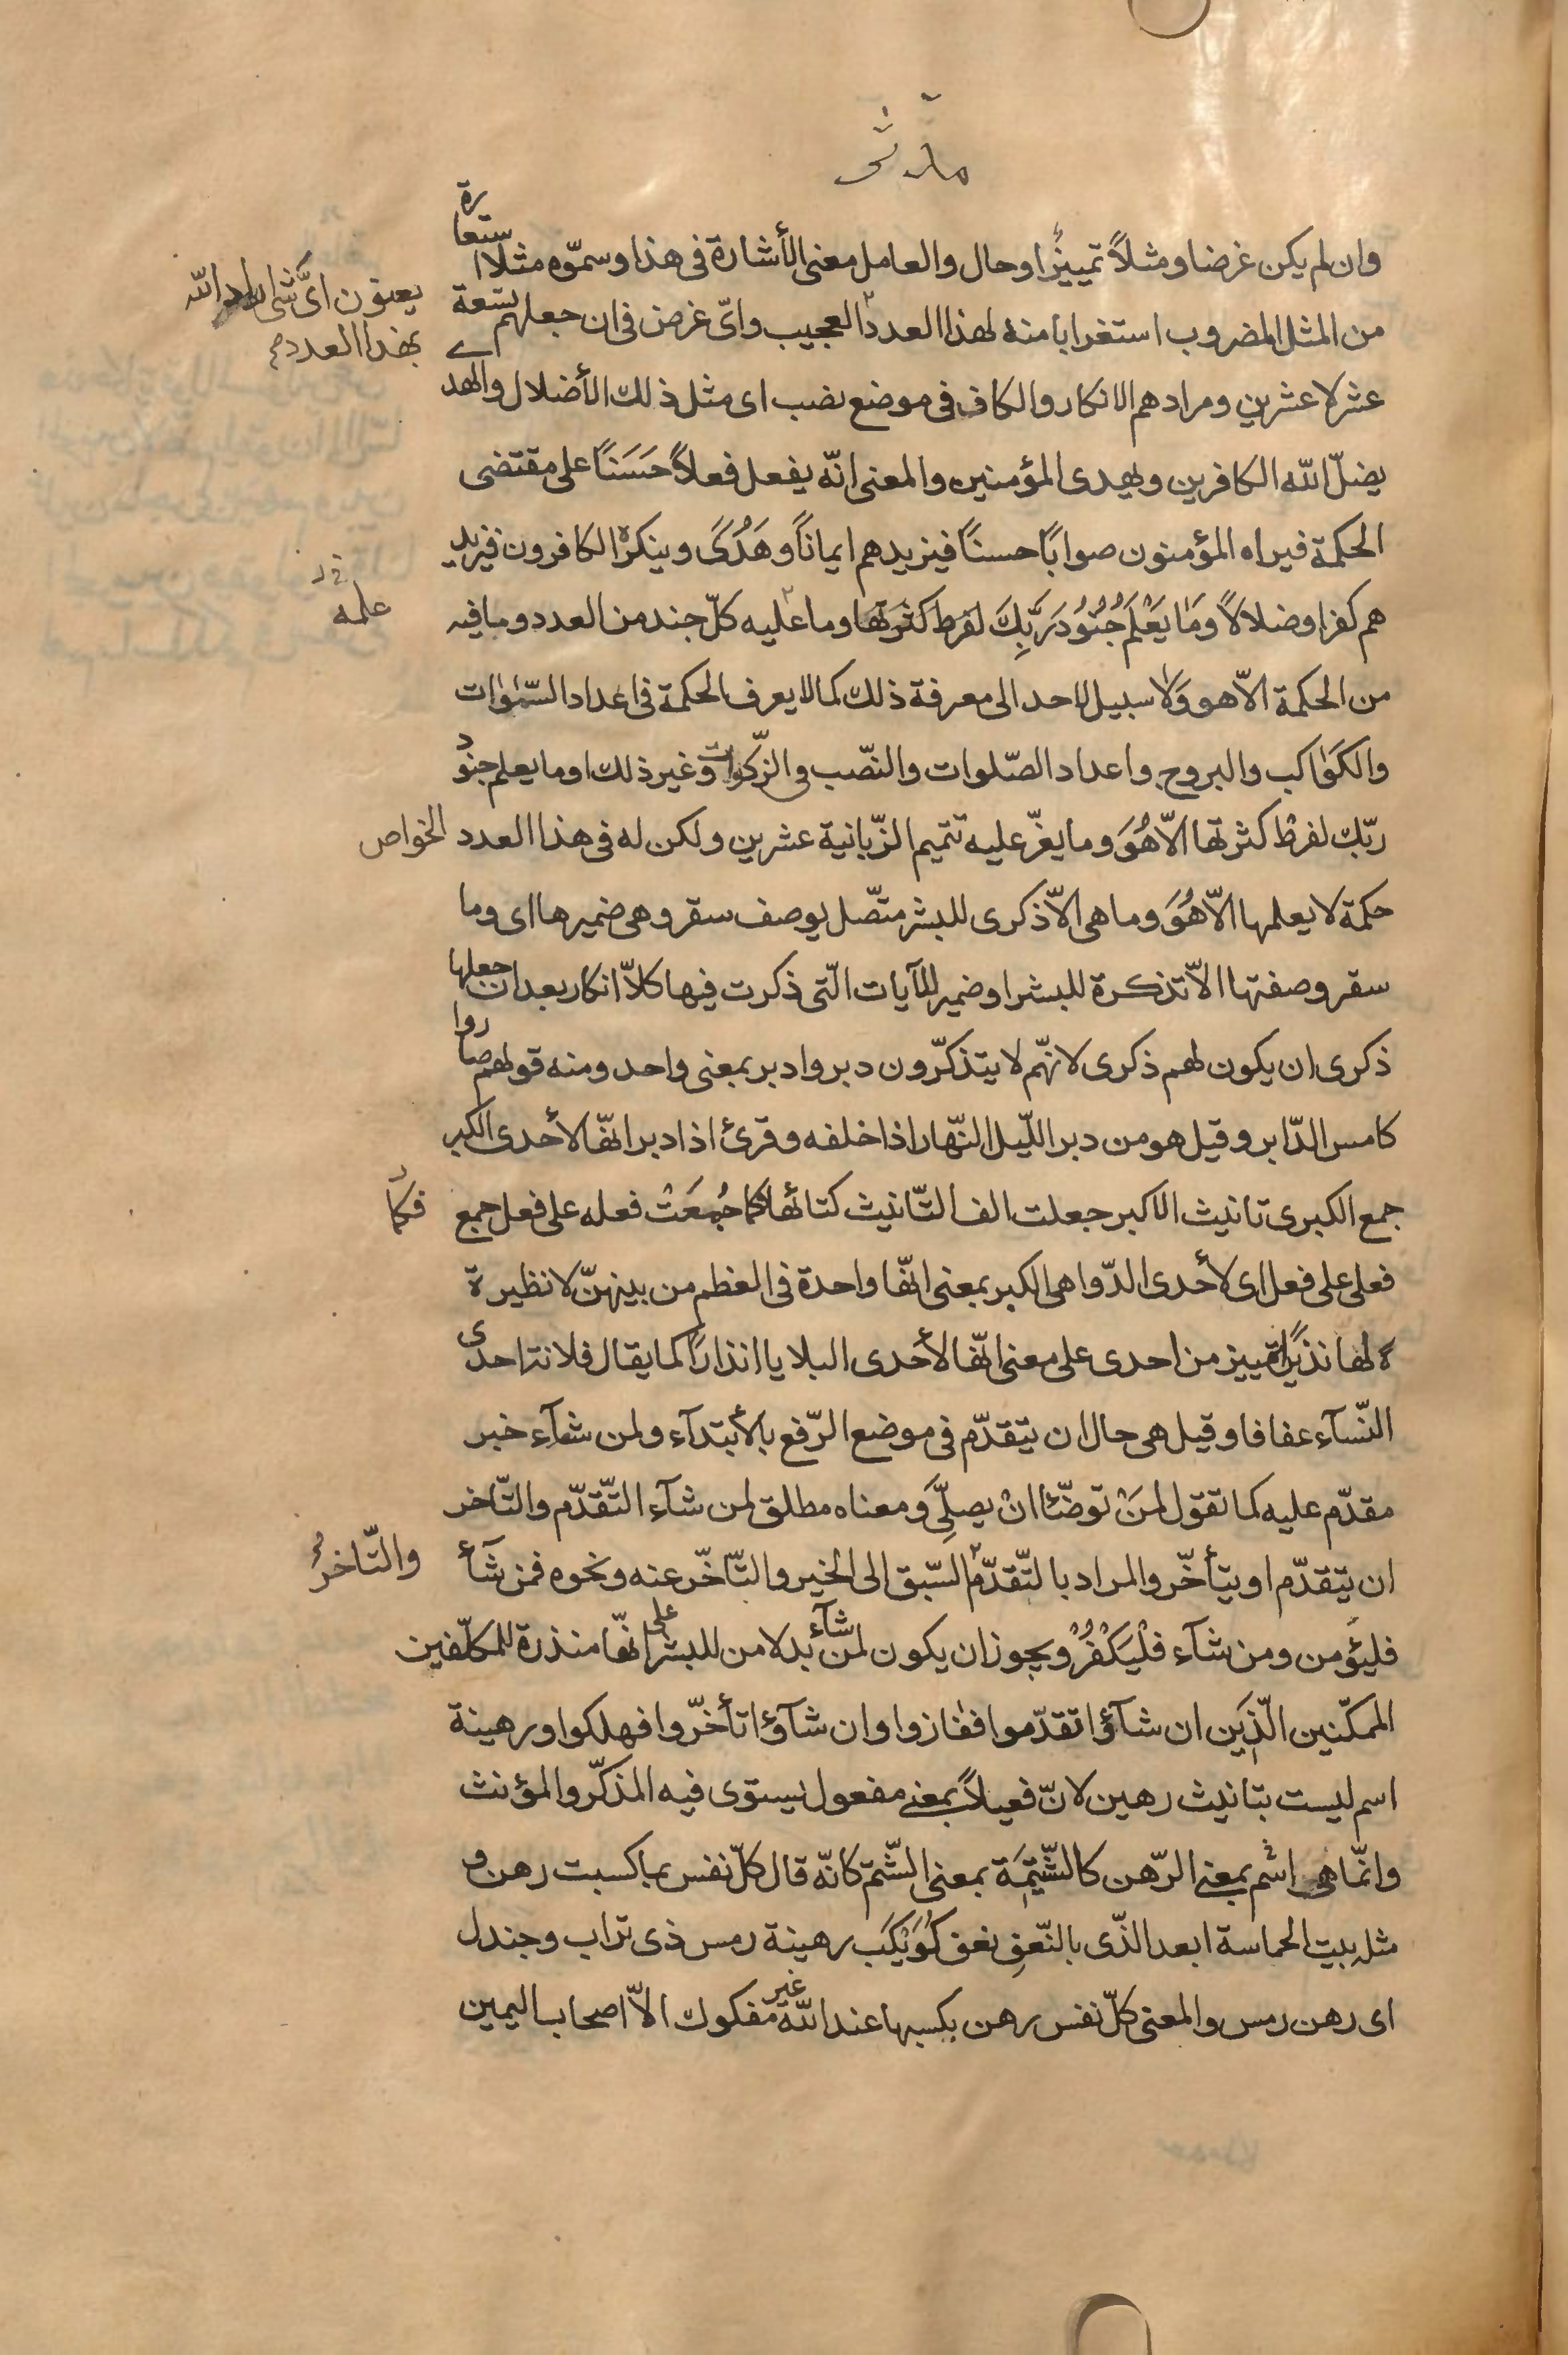 مدثر
وان لم يكن غرضا ومثلاً تمييزٌ اوحال والعامل معنى الأشارة فى هذا وسمّوه مثلا استعارة
من المثل المضروب استغرابا منه لهذا العدد العجيب واىّ غرض فى ان جعلهم تسعة
يعنون اىّ شئ اراد الله
بهذا العدد
عشر لا عشرين ومرادهم الانكار والكاف فى موضع نصب اى مثل ذلك الأضلال والهدى
يضلّ الله الكافرين ويهدى المؤمنين والمعنى انّه يفعل فعلاً حَسَنَاً على مقتضى
الحكمة فيراه المؤمنون صوابًا حسنًا فيزيدهم ايمانًا وهَدُىً وينكره الكافرون فيزيد
هم كفرا وضلالاً وَمَا يَعْلَمُ جُنُوُدَ رَبِّكَ لفرط كثرتها وما عليه كلّ جند من العدد وما فيه
علمه
من الحكمة الاّ هو وَلا سبيل لاحد الى معرفة ذلك كما لا يعرف الحكمة فى اعداد السّموات
والكوَاكب والبروج واعداد الصّلوات والنّصب فى الزّكوات وغير ذلك او ما يعلم جنود
ربّك لفرط كثرتها الاّ هُوَ وما يعزّ عليه تتميم الزّبانية عشرين ولكن له فى هذا العدد الخواص
حكمة لا يعلمها الاّ هُوَ وما هى الاّ ذكرى للبشر متّصل بوصف سقر وهى ضميرها اى وما
سقر وصفتها الاّ تذكرة للبشر او ضمير للآيات الّتى ذكرت فيها كلاّ انكار بعد ان جعلها
ذكرى ان يكون لهم ذكرى لانّهم لا يتذكّرون دبر وادبر بمعنى واحد ومنه قولهم صاروا
كامس الدّابر وقيل هو من دبر اللّيل النّهار اذا خلفه وقرئ اذا دبر انّها لأحدى الكبر
جمع الكبرى تانيث الاكبر جعلت الف التّانيث كتائها فكما جُمعَتْ فعله على فعل جمع
فكما
فعلى على فعل اى لأحدى الدّواهى الكبر بمعنى انّها واحدة فى العظم من بينهنّ لا نظيرة
ة لها نذيرًا تمييز من احدى على معنى انّها لأحدى البلايا انذارًا كما يقال فلانة احدى
النّسآء عفافا وقيل هى حال ان يتقدّم فى موضع الرّفع بالأبتدآء ولمن شآء خبر
مقدّم عليه كما تقول لمَنْ توضّئا انْ يصلِّىَ ومعناه مطلق لمن شآء التّقدّم والتّاخر
ان يتقدّم او يتأخّر والمراد بالتّقدّم السّبق الى الخير والتّأخّر عنه ونحوه فمن شآء
والتّاخرُ
فليؤمن ومن شآء فلْيَكْفُرُ ويجوز ان يكون لمن شآء بدلا من للبشر على انّها منذرة للمكلّفين
الممكّنين الّذين ان شآؤا تقدّموا ففازوا وان شآؤا تأخّروا فهلكوا ورهينة
اسم ليست بتانيث رهين لانّ فعيلاً بمعنى مفعول يستوى فيه المذكّر والمؤنث
وانّما هى اسْم بمعنى الرّهن كالشّتيمَة بمعنى الشّتم كانّه قال كلّ نفس بما كسبت رهن و
مثله بيت الحماسة ابعد الذّى بالنّعفِ نعف كُوَيْكَب رهينة رمس ذى تراب وجندل
اى رهن رمس والمعنى كلّ نفس رهن بكسبها عند اللّه غير مفكوك الاّ اصحاب اليمين